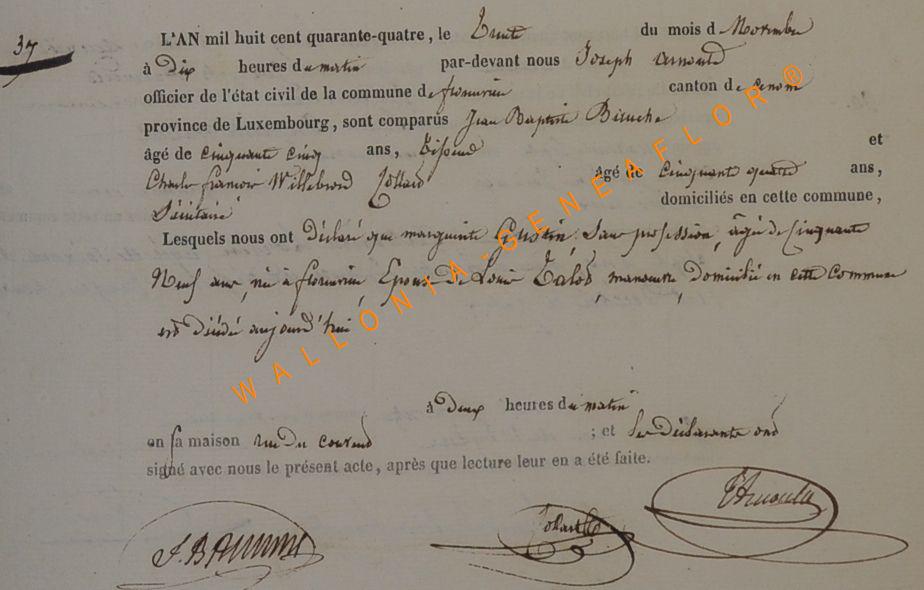 37
L'AN mil huit cent quarante-quatre, le Trente du mois d Novembre
à Dix heures du matin par-devant nous Joseph Arnould
officier de l'état civil de la commune de florenville canton de
province de Luxembourg, sont comparus Jean Baptiste
âgé de cinquante cinq ans, Tisserand et
Charles françois Willebrord Collard âgé de cinquante quatre ans,
domiciliés en cette commune,
Lesquels nous ont Déclaré que marguerite Gustin, Sans profession, âgée de Cinquante
Neuf ans, née à florenville, Epouse De Louis manoeuvre, Domicilié en cette Commune
est Décédée aujourd'hui
à Deux heures du matin
en sa maison rue Du couvent ; et Les Déclarants ont
signé avec nous le présent acte, après que lecture leur en a été faite.
WALLONIA-GENEAFLOR®